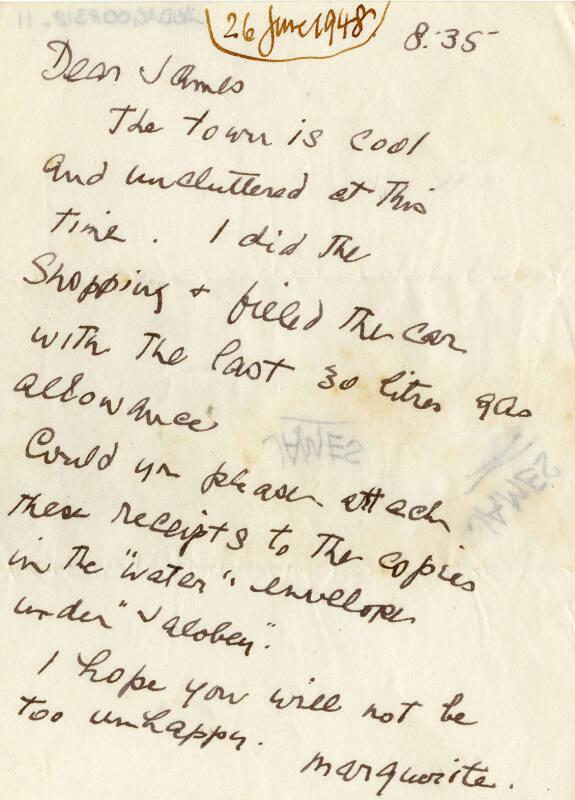 26 June 1948.
8.35
Dear James
The town is cool
and uncluttered at this
time. I did the
Shopping + filled the car
with the last 30 litres gas
allowance
Could you please attach
these receipts to the copies
in the "water" envelope
under "Jacobey".
I hope you will not be
too unhappy.
Marguerite.
JAMES
JAMES